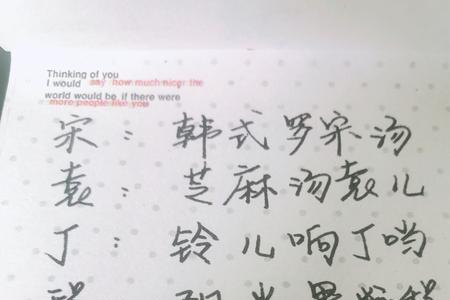 Thinking of you
I would say how much nicer the
world would be if there were
more people like you
宋：韩式罗宋汤
袁：芝麻汤袁儿
丁：铃儿响丁哟